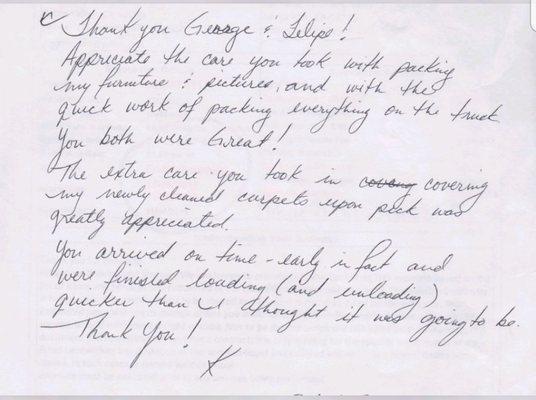 Thank you George & Felipe!
Appreciate the care you took with packing
my furniture & pictures, and with the
quick work of packing everything on the truck
You both were Great!
The extra care you took in covering
my newly cleaned carpets upon pick was
greatly appreciated.
You arrived on time - early in fact and
were finished loading (and unloading)
quicker than I thought it was going to be.
Thank You!